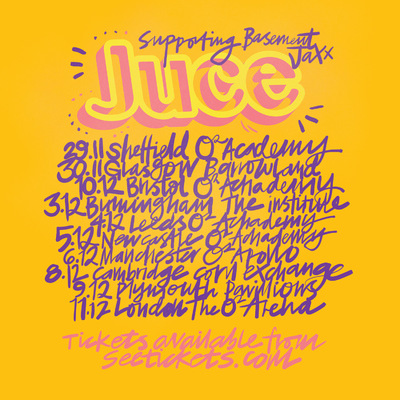 Supporting Basement
Jaxx
Juce
29.11 Sheffield O2 Academy
30.11 Glasgow Barrowland
10.12 Bristol O2 Achademy
3.12 Birmingham The institute
4.12 Leeds O2 Achademy
5.12 Newcastle O2 Achademy
6.12 Manchester O2 Apollo
8.12 Cambridge corn Exchange
9.12 Plymouth Pavillions
11.12 London The O2 Arena
Tickets available from
Seetickets.com